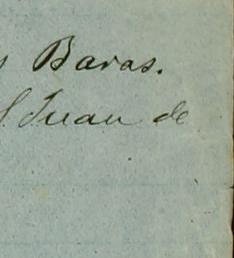 s Baras.
l Juan de